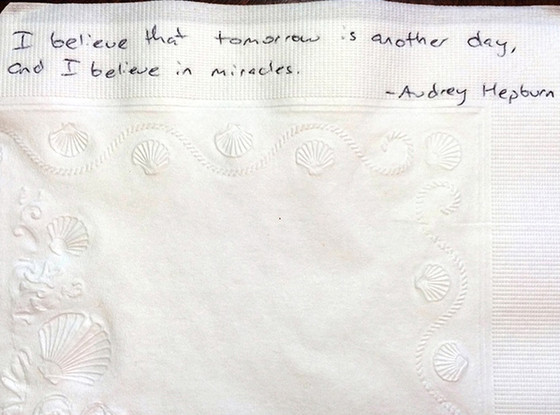 I believe that tomorrow is another day,
and I believe in miracles.
-Audrey Hepburn